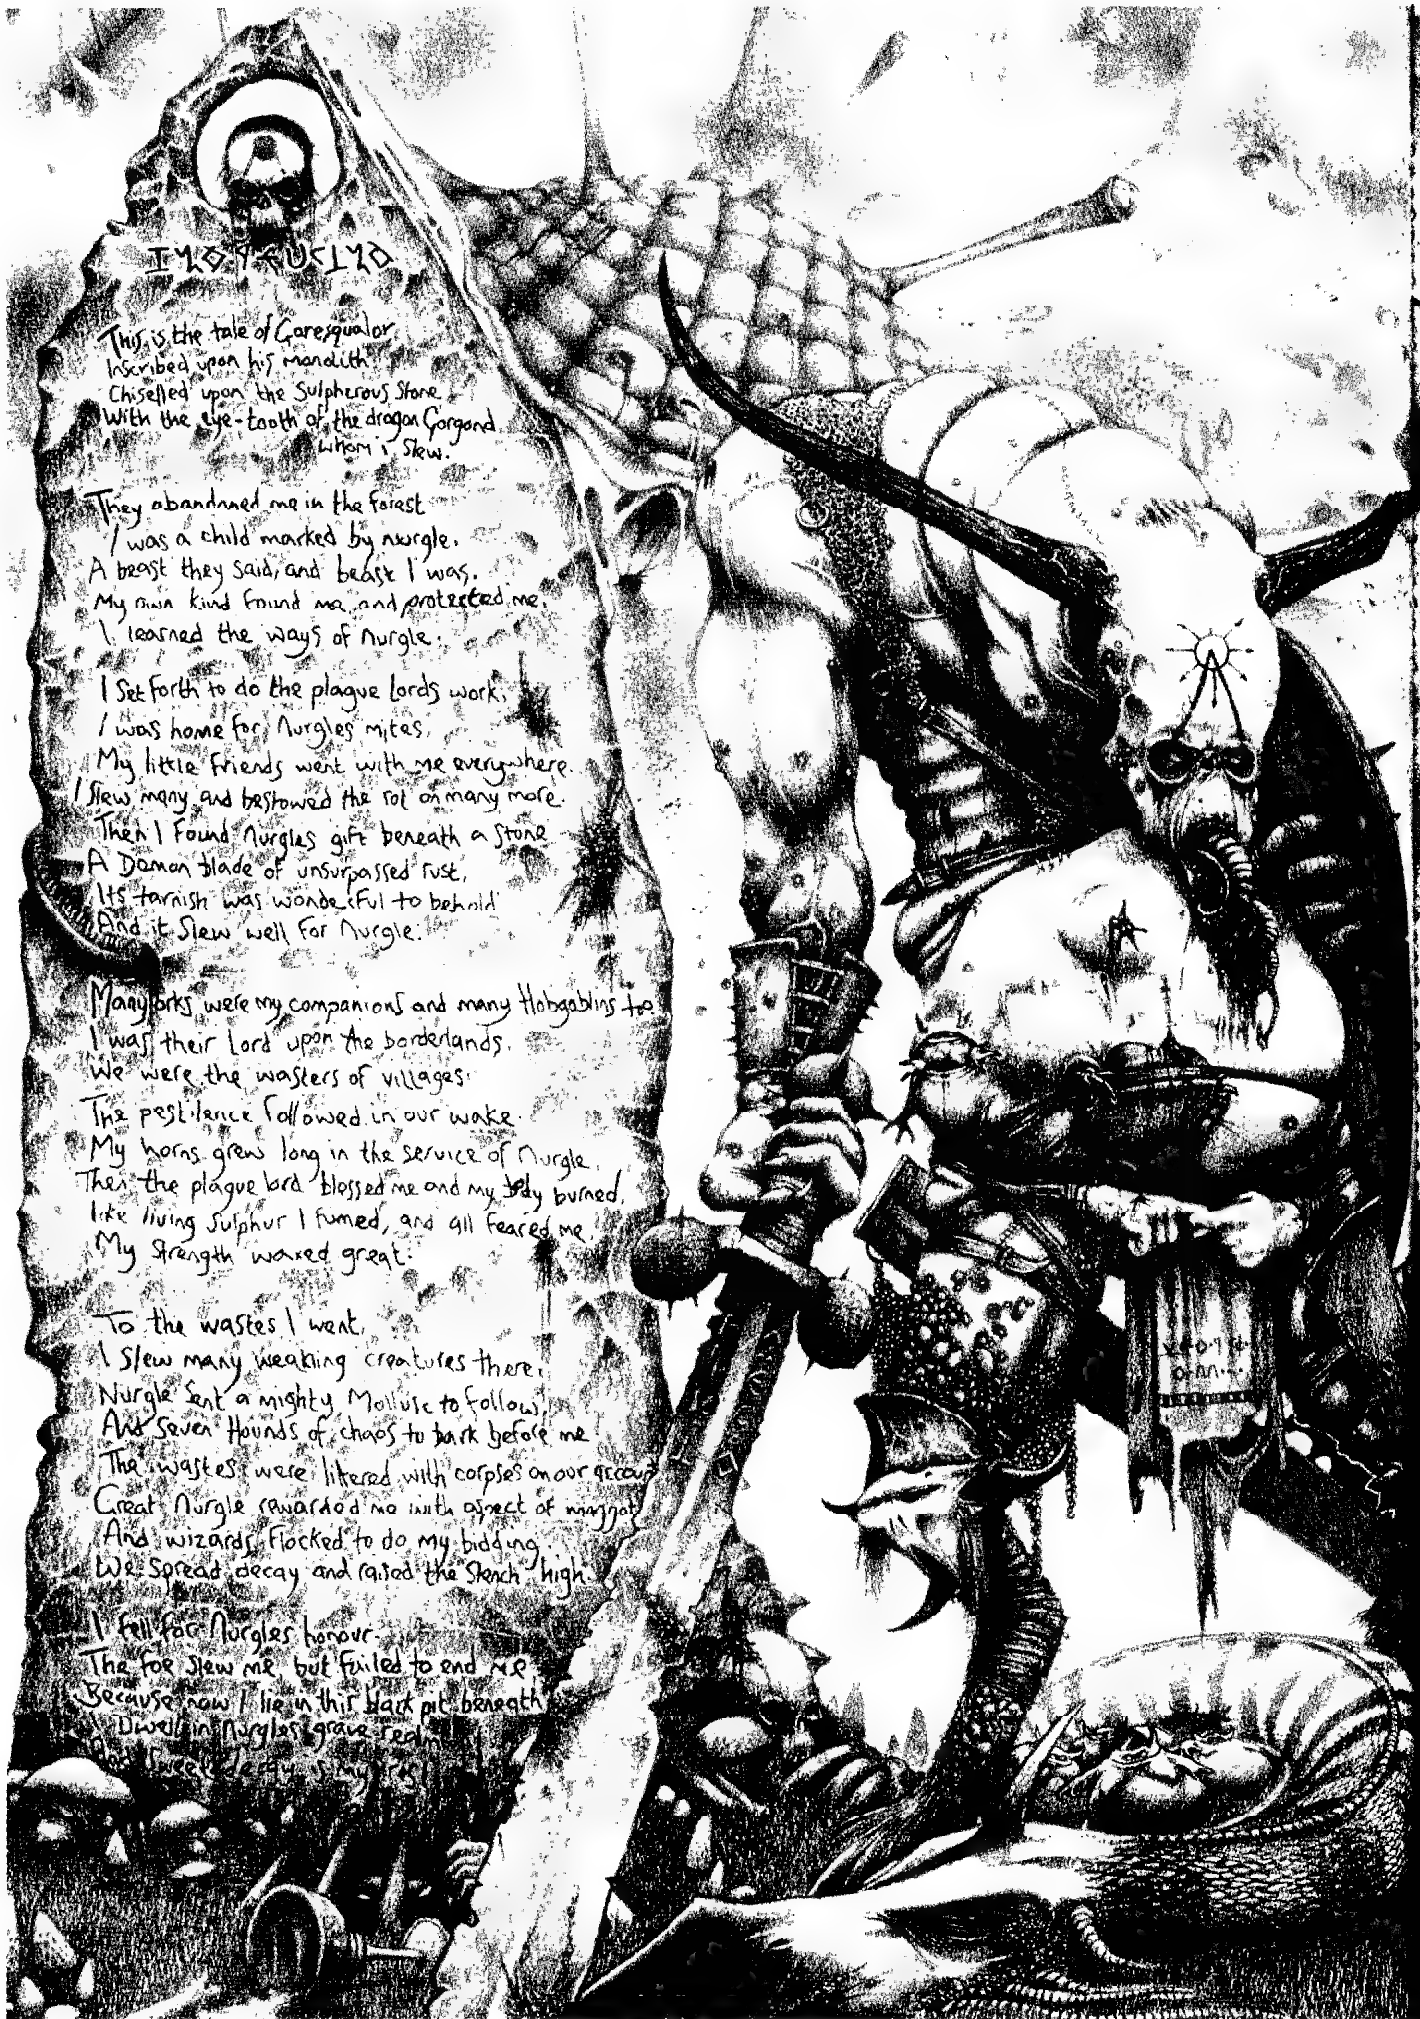 This is the tale of Goresqualor
Inscribed upon his monolith
Chiselled upon the Sulpherous Stone
With the eye-tooth of the dragon Gorgond
whom i slew.
They abandnned me in the forest
I was a child marked by nurgle.
A beast they said, and beast I was.
My own kind found me and protected me.
I learned the ways of nurgle.
I Set forth to do the plague lords work,
I was home for Nurgles mites,
My little friends went with me everywhere.
I slew many and bestowed the rot on many more.
Then I found Nurgles gift beneath a stone
A Demon blade of unsurpassed rust,
Its tarnish was wonderful to behold
And it slew well for Nurgle.
Many orks were my companions and many Hobgoblins too
I was their Lord upon the borderlands.
We were the wasters of villages.
The pestilence followed in our wake.
My horns grew long in the service of Nurgle.
Then the plague lord blessed me and my body burned,
like living sulphur I fumed, and all feared me.
My strength waxed great.
To the wastes I went,
I slew many weakling creatures there.
Nurgle sent a mighty Mollusc to follow,
And seven Hounds of chaos to bark before me
The wastes were littered with corpses on our accoun
Great Nurgle rewarded me with aspect of maggot
And wizards flocked to do my bidding.
We spread decay and raised the stench high.
I fell for Nurgles honour.
The foe slew me, but failed to end me
Because now I lie in this dark pit beneath
I Dwell in Nurgles grave realm
And sweet decay is my